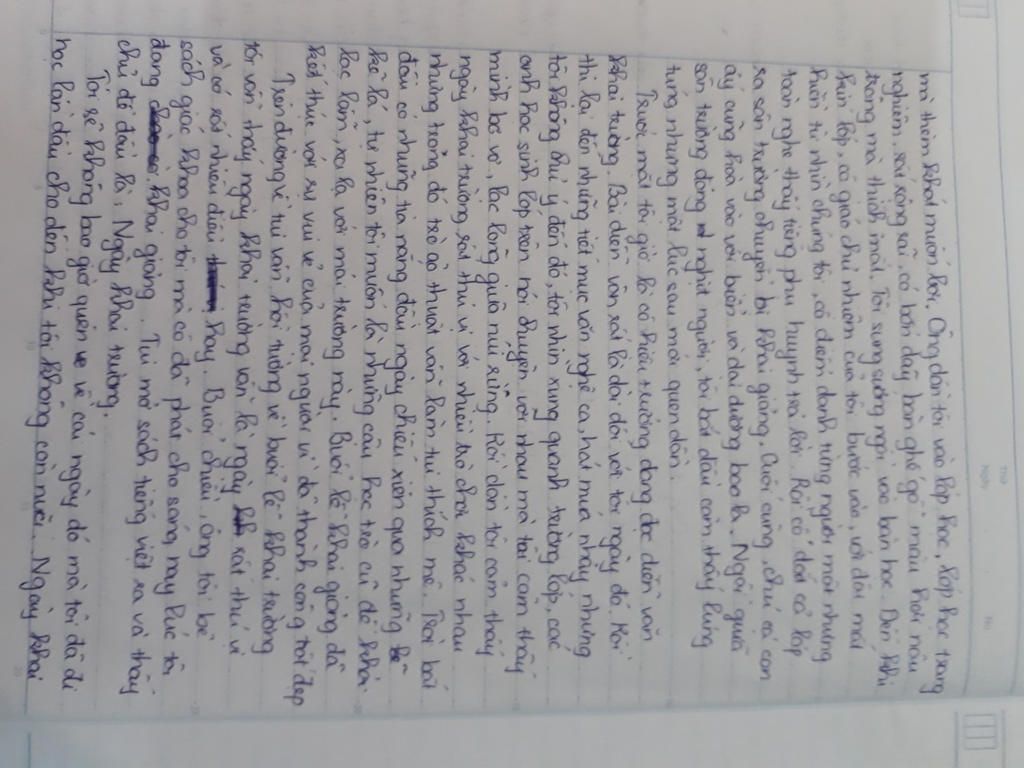 Thứ
Ngày
No.
mà thèm khát muốn bơi. Ông dẫn tôi vào lớp học, lớp học trang
nghiêm, rất rộng rãi, có bốn dãy bàn ghế gỗ màu hơi nâu
trông mà thích mắt. Tôi sung sướng ngồi vào bàn học. Đến khi
kín lớp, cô giáo chủ nhiệm của tôi bước vào, với đôi mắt
hiền từ nhìn chúng tôi, cô điểm danh từng người một nhưng
toàn nghe thấy tiếng phụ huynh trả lời. Rồi cô dắt cả lớp
ra sân trường chuẩn bị khai giảng. Cuối cùng, chú cá con
ấy cũng hoà vào với biển và đại dương bao la. Ngồi giữa
sân trường đông nghịt người, tôi bắt đầu cảm thấy lúng
túng nhưng một lúc sau mới quen dần.
Trước mắt tôi giờ là cô hiệu trưởng đang đọc diễn văn
khai trường. Bài diễn văn rất là dài đối với tôi ngày đó. Rồi
thì là đến những tiết mục văn nghệ ca hát múa nhảy nhưng
tôi không chú ý đến đó, tôi nhìn xung quanh trường lớp, các
anh học sinh lớp trên nói chuyện với nhau mà tôi cảm thấy
mình bơ vơ, lạc lõng giữa núi rừng. Rồi dần tôi cảm thấy
ngày khai trường rất thú vị với nhiều trò chơi khác nhau
nhưng trong đó trò ảo thuật vẫn làm tui thích mê. Trời bắt
đầu có những tia nắng đầu ngày chiếu xiên qua những
kẽ lá, tự nhiên tôi muốn là những cậu học trò cũ để khỏi
lạc lõm, xa lạ với mái trường này. Buổi lễ khai giảng đã
kết thúc với sự vui vẻ của mọi người vì đã thành công tốt đẹp
Trên đường về tui vẫn hồi tưởng về buổi lễ khai trường
tôi vẫn thấy ngày khai trường vẫn là ngày rất thú vị
và có rất nhiều điều hay. Buổi chiều, ông tôi bê
sách giáo khoa cho tôi mà cô đã phát cho sáng nay lúc tôi
đang khai giảng. Tui mở sách tiếng việt ra và thấy
chủ đề đầu là, Ngày khai trường.
Tôi sẽ không bao giờ quên về cái ngày đó mà tôi đã đi
học lần đầu cho đến khi tôi không còn nữa. Ngày khai